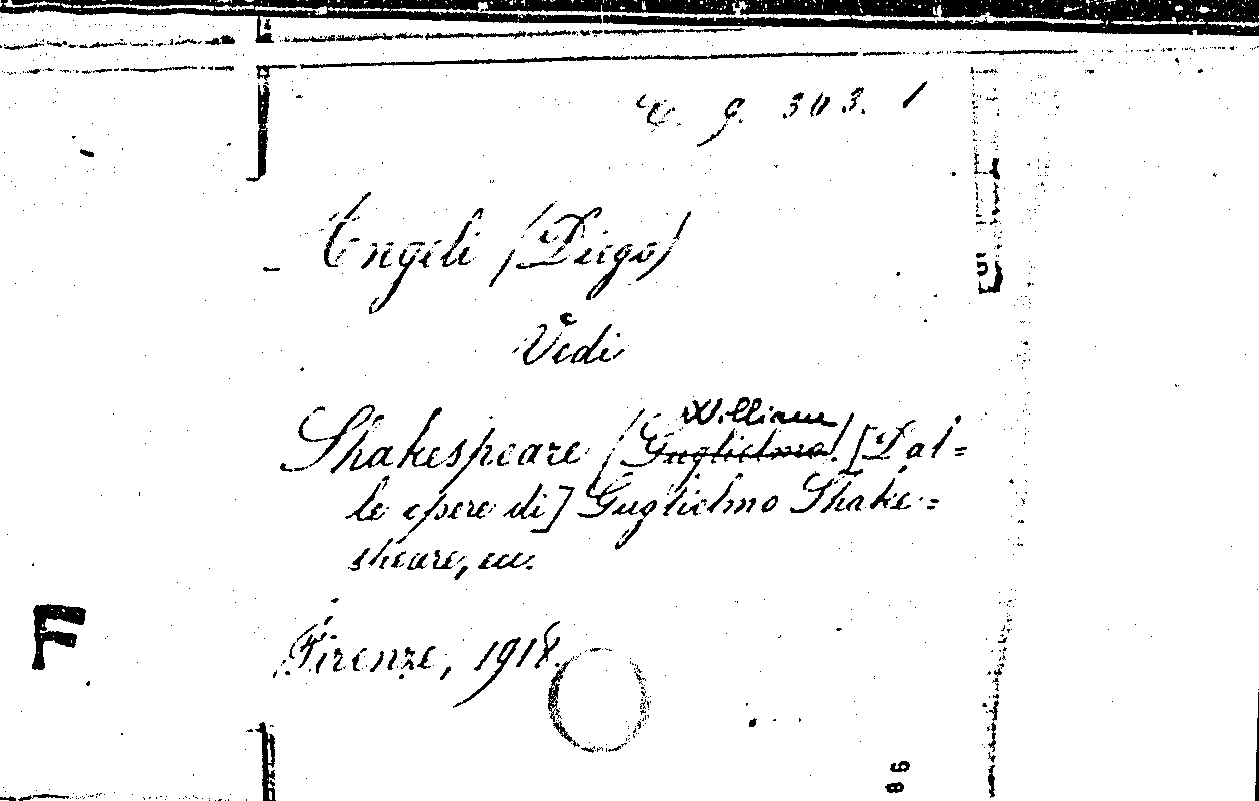 C. 9. 303. 1
Engeli (Diego)
Vedi
William
Shakespeare (Guglielmo). [Dal=
le opere di] Guglielmo Shake=
speare, ecc.
Firenze, 1918.
F
5
86